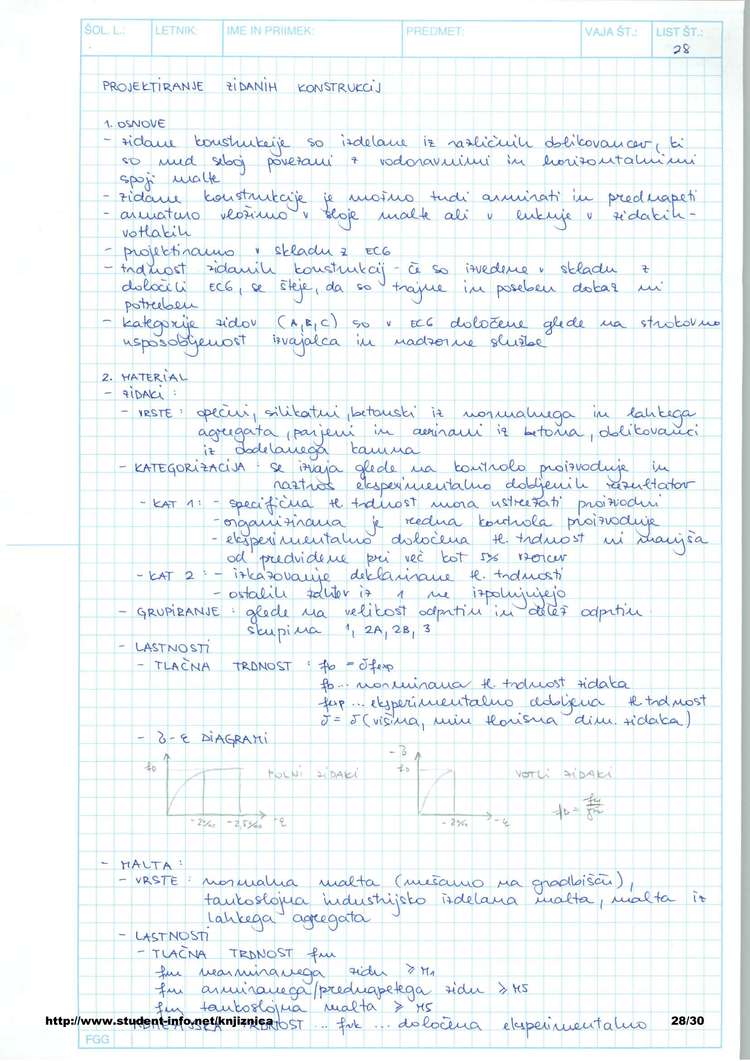 ŠOL. L.: LETNIK: IME IN PRIIMEK: PREDMET: VAJA ŠT.: LIST ŠT.:
28
PROJEKTIRANJE ZIDANIH KONSTRUKCIJ
1. OSNOVE
- zidane konstrukcije so izdelane iz različnih oblikovancev, ki
so med seboj povezani z vodoravnimi in horizontalnimi
spoji malte
- zidane konstrukcije je možno tudi armirati in prednapeti
- armaturo vložimo v sloje malte ali v luknje v zidakih-
votlakih
- projektiramo v skladu z EC6
- trdnost zidanih konstrukcij - če so izvedene v skladu z
določili EC6, se šteje, da so trajne in poseben dokaz ni
potreben
- kategorije zidov (A,B,C) so v EC6 določene glede na strokovno
usposobljenost izvajalca in nadzorne službe
2. MATERIAL
- ZIDAKI :
- VRSTE : opečni, silikatni, betonski iz normalnega in lahkega
agregata, parjeni in aerirani iz betona, oblikovanci
iz obdelanega kamna
- KATEGORIZACIJA - se izvaja glede na kontrolo proizvodnje in
raztros eksperimentalno dobljenih rezultatov
- KAT 1: - specifična tl. trdnost mora ustrezati proizvodni
- organizirana je redna kontrola proizvodnje
- eksperimentalno določena tl. trdnost ni manjša
od predvidene pri več kot 5% vzorcev
- KAT 2 : - izkazovanje deklarirane tl. trdnosti
- ostalih zahtev iz 1 ne izpolnjujejo
- GRUPIRANJE : glede na velikost odprtin in delež odprtin
skupina 1, 2A, 2B, 3
- LASTNOSTI
- TLAČNA TRDNOST : fb = δfexp
fb ... normirana tl. trdnost zidaka
fexp ... eksperimentalno dobljena tl trdnost
δ = δ (višina, min tlorisna dim. zidaka)
- σ-ε DIAGRAMI
fb POLNI ZIDAKI -2‰ -2,5‰ -ε
-σ fb VOTLI ZIDAKI -2‰ -ε
- MALTA :
- VRSTE : normalna malta (mešamo na gradbišču),
tankoslojna industrijsko izdelana malta, malta iz
lahkega agregata
- LASTNOSTI
- TLAČNA TRDNOST fm
fm nearmiranega zidu ≥ M1
fm armiranega/prednapetega zidu ≥ M5
fm tankoslojna malta ≥ M5
TRDNOST ... fvk ... določena eksperimentalno
http://www.student-info.net/knjiznica 28/30
FGG